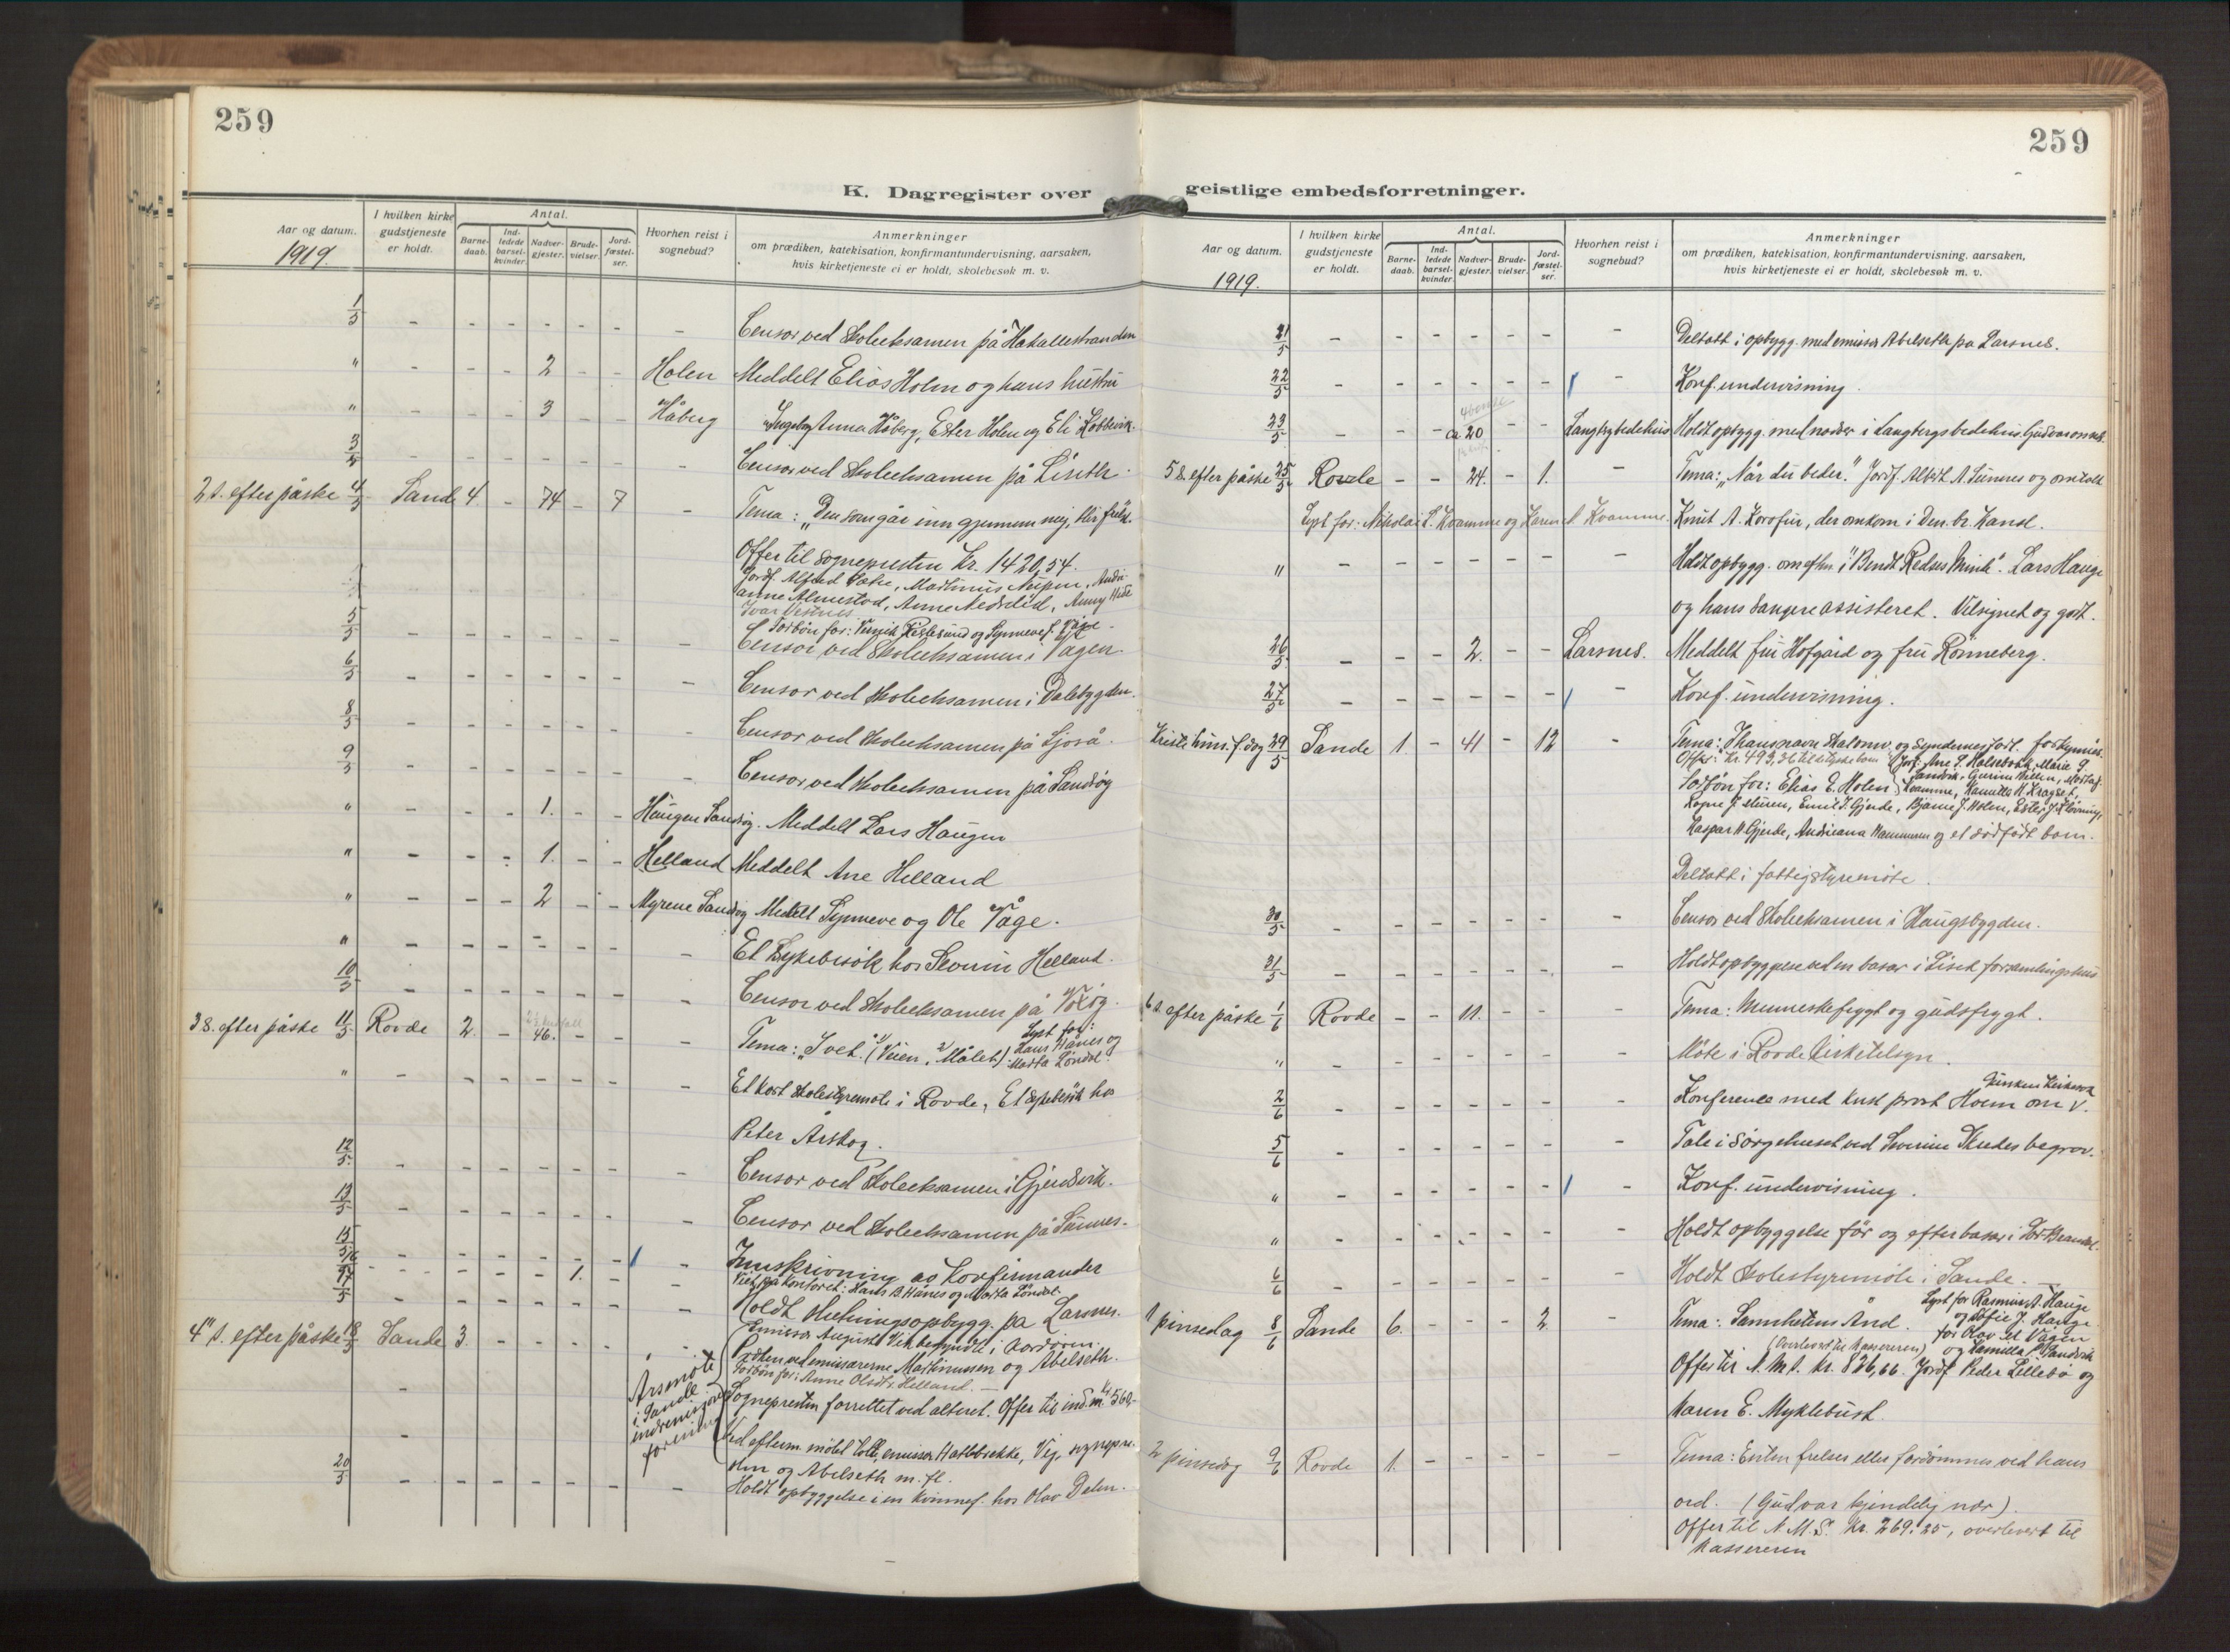 259
259
K. Dagregister over geistlige embedsforretninger.
Aar og datum.
1919.
I hvilken kirke gudstjeneste er holdt.
Antal.
Barnedaab.
Indledede barselkvinder.
Nadvergjester.
Brudevielser.
Jordfæstelser.
Hvorhen reist i sognebud?
Anmerkninger
om prædiken, katekisation, konfirmantundervisning, aarsaken,
hvis kirketjeneste ei er holdt, skolebesøk m. v.
1/5 - - - - - - - Censor ved skoleeksamen på Hakallestranden
" - - - 2 - - Holen Meddelt Elias Holen og hans hustru
" - - - 3 - - Håberg Anna Håberg, Ester Holen og Eli
3/5 - Censor ved skoleeksamen på
2 s. efter påske 4/5 Sande 4. - 74 - 7 - Tema: "Den som går inn gjennem mig, blir frelst.
Offer til sognepresten kr. 1420,54.
Jordf. Alfred Sætre, Martinus
anne Almestad, Anne Nedrelid,
Ivar Vestnes
Forbøn for: og Synneve J. Våge.
5/5 - - - - - - - Censor ved skoleeksamen i Vågen.
6/5 - - - - - - - Censor ved skoleeksamen i Dalebygden.
8/5 - - - - - - - Censor ved skoleeksamen på
9/5 - Censor ved skoleeksamen på Sandvig
" - - - 1. - - Haugen Sandvig. Meddelt Lars Haugen
" - - - 1. - - Helland Meddelt Ane Helland
" - - - 2 - - Myrene Sandvig Meddelt Synneve og Ole Våge.
" - - - - - - - Et sykebesøk hos Severin Helland.
10/5 - - - - - - - Censor ved skoleeksamen på
3 s. efter påske 11/5 Rovde 2. - 46. - - - Tema: "I vet. (1) Veien, 2) Målet). Lyst for:
Hans Hånes og
Marta Løndal.
" - - - - - - - Et kort skolestyremøte i Rovde, Et sykebesøk hos
Peter Årskog.
12/5 - - - - - - - Censor ved skoleeksamen i Gjerdsvik.
13/5 - - - - - - - Censor ved skoleeksamen på Sunnes.
15/5 - - - - - - - Innskrivning av konfirmander
- - - - 1. - - Viet på kontoret: Hans B. Hånes og Marta Løndal.
17/5 - - - - - - - Holdt opbygg. på Larsnes.
4" s. efter påske 18/5 Sande 3. - - - - - Emissær August Vik begyndte i kordøren.
ved emissærerne Martinussen og Abelseth.
Forbøn for: Anne Olsdtr. Helland. -
Årsmøte
i Sande
indremisjons
forening
Sognepresten forrettet ved alteret. Offer til ind.m. kr. 560,-
Ved efterm. møtet talte emissær Hatlebrekke, Vig, sognepre-
sten og Abelseth m. fl.
20/5 - - - - - - - Holdt opbyggelse i en kvinnef. hos Olav Dalen.
Aar og datum.
1919.
I hvilken kirke gudstjeneste er holdt.
Antal.
Barnedaab.
Indledede barselkvinder.
Nadvergjester.
Brudevielser.
Jordfæstelser.
Hvorhen reist i sognebud?
Anmerkninger
om prædiken, katekisation, konfirmantundervisning, aarsaken,
hvis kirketjeneste ei er holdt, skolebesøk m. v.
21/5 - - - - - - - Deltatt i opbygg. med emissær Abelseth på Larsnes.
22/5 - - - - - - - Konf. undervisning.
23/5 - - - ca 20 - - Holdt opbygg. med nadver i bedehus.
5 s. efter påske 25/5 Rovde - - 24. - 1. - Tema: "Når du beder." Jordf. Albert A. Sunnes og omtalt
Lyst for: Nikolai S. Kvamme og Karen Kvamme. Knut A. der omkom i Den br. Kanal.
" - - - - - - - Holdt opbygg. om eftm. i "Bendt Redses Minde". Lars Hauge
og hans sangere assisteret. Velsignet og godt.
26/5 - - - 2. - - Larsnes. Meddelt fru Hofgård og fru Rønneberg.
27/5 - - - - - - - Konf. undervisning.
Kristi him. f. dag 29/5 Sande 1. - 41 - 12 - Tema: I hans navn skal omv. og syndernes forl. forkynnes.
Offer: kr. 493,36 til Jordf. Ane S. Marie
Forbøn for: Elias E. Holen
Emil J. Gjerde, Bjarne J. Holen,
Kaspar Gjerde, og et dødfødt barn.
Deltatt i fattigstyremøte.
30/5 - - - - - - - Censor ved skoleeksamen i Haugsbygden.
31/5 - - - - - - - Holdt opbyggelse ved en basar i forsamlingshus
6 s. efter påske 1/6 Rovde - - 11. - - - Tema: Menneskefrygt og gudsfrygt.
" - - - - - - - Møte i Rovde kirketilsyn.
2/6 - - - - - - - Konferense med kst prost Hoem om
5/6 - - - - - - - Tale i sørgehuset ved Severine begrav.
" - - - - - - - Konf. undervisning.
" - - - - - - - Holdt opbyggelse før og efter basar i
6/6 - - - - - - - Holdt skolestyremøte i Sande.
1 pinsedag 8/6 Sande 6. - - - 2. - Tema: Sannhetens Ånd. Lyst for Rasmus A. Hauge
og Sofie J. Hauge
for Olav Vågen
og Kamilla Sandvik
(Overlevert til kassereren)
Offer til N.M.S. kr. 826,66. Jordf. Peder Lillebø og
Karen E. Myklebust.
2 pinsedag 9/6 Rovde 1. - - - - - Tema: Enten frelses eller fordømmes ved hans
ord. (Gud var kjendelig nær).
Offer til N.M.S. kr. 269,25, overlevert til
kassereren